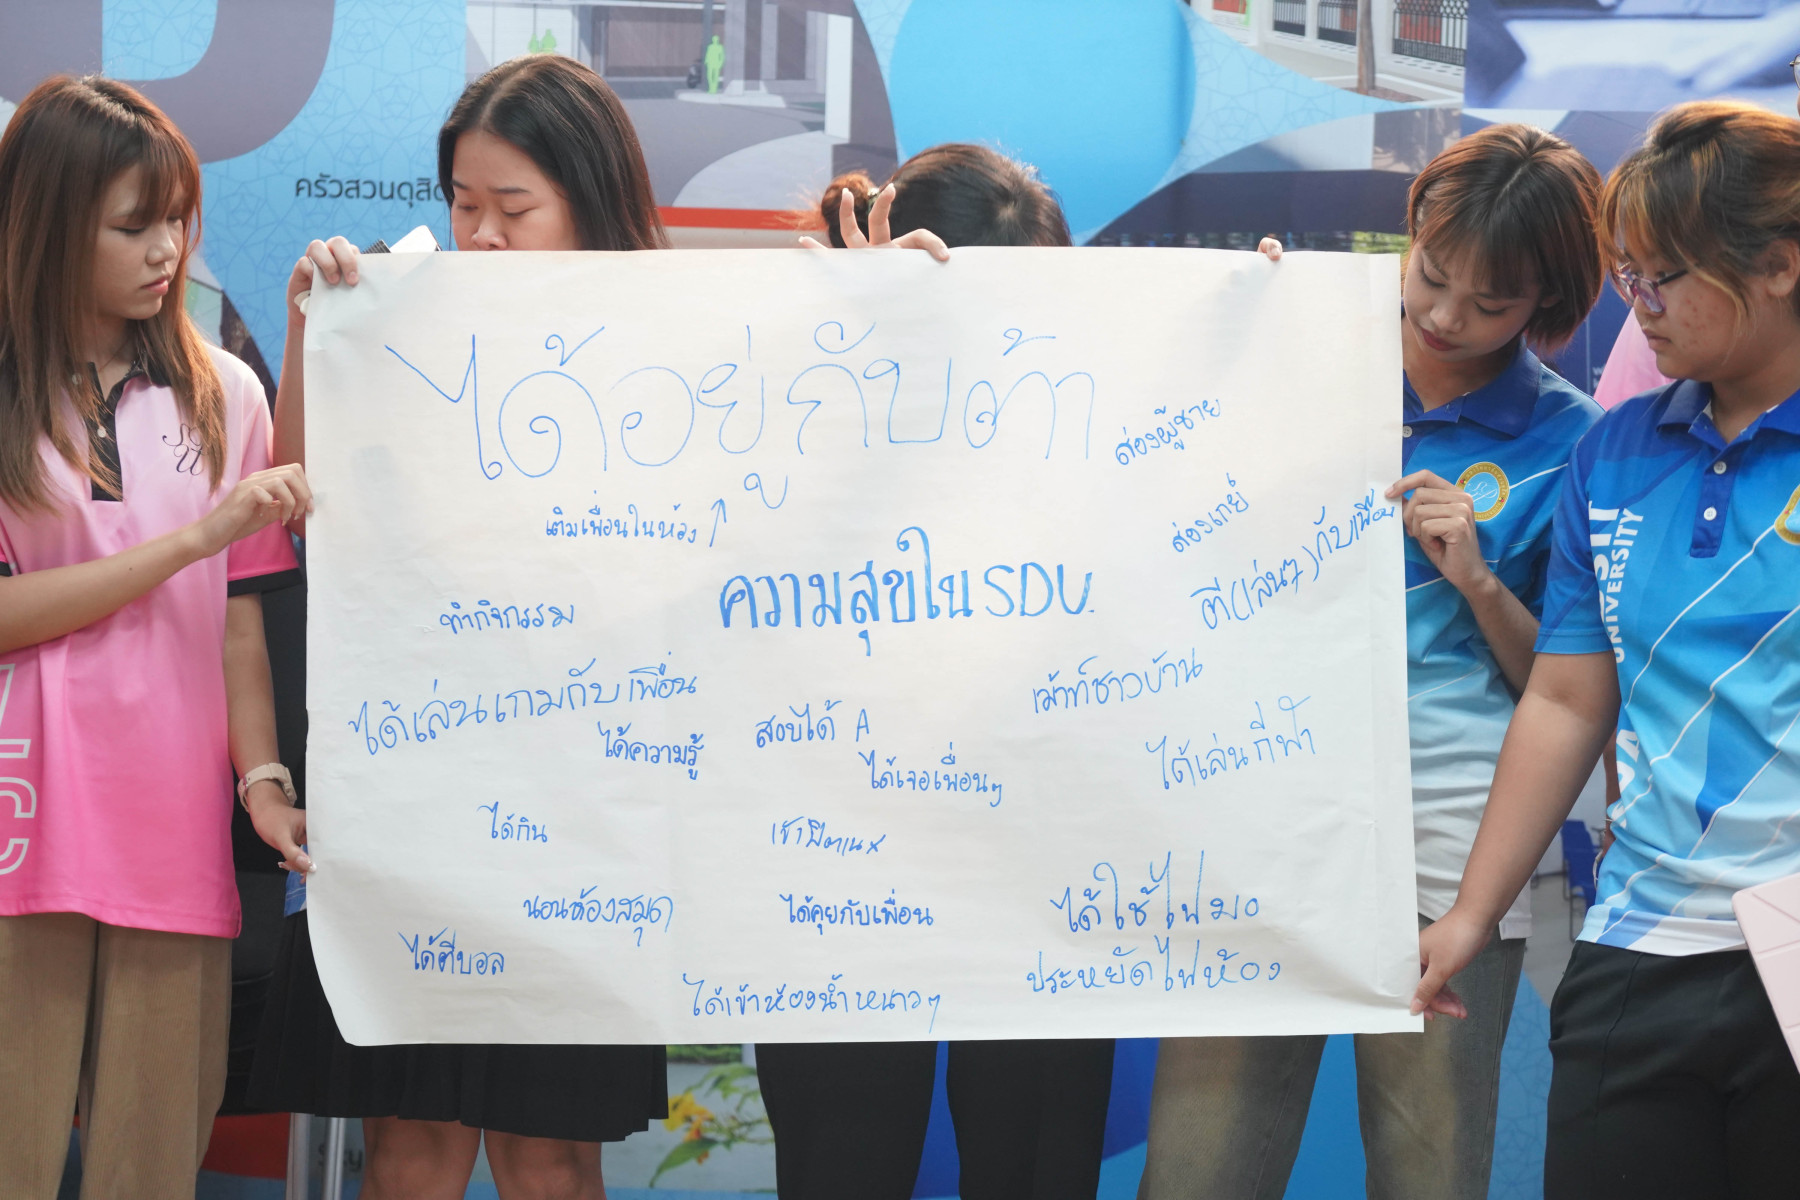 ครัวสวนดุสิต
ได้อยู่กับต้า
ส่องผู้ชาย
เติมเพื่อนในห้อง
ส่องเกย์
ความสุขในSDU.
ตี(เล่นๆ)กับเพื่อน
ทำกิจกรรม
ได้เล่นเกมกับเพื่อน
เม้าท์ชาวบ้าน
ได้ความรู้
สอบได้ A
ได้เจอเพื่อนๆ
ได้เล่นกีฬา
ได้กิน
นอนห้องสมุด
ได้คุยกับเพื่อน
ได้ใช้ไฟมอ
ได้ตีบอล
ประหยัดไฟห้อง
ได้เข้าห้องน้ำหนาวๆ
UNIVERSITY